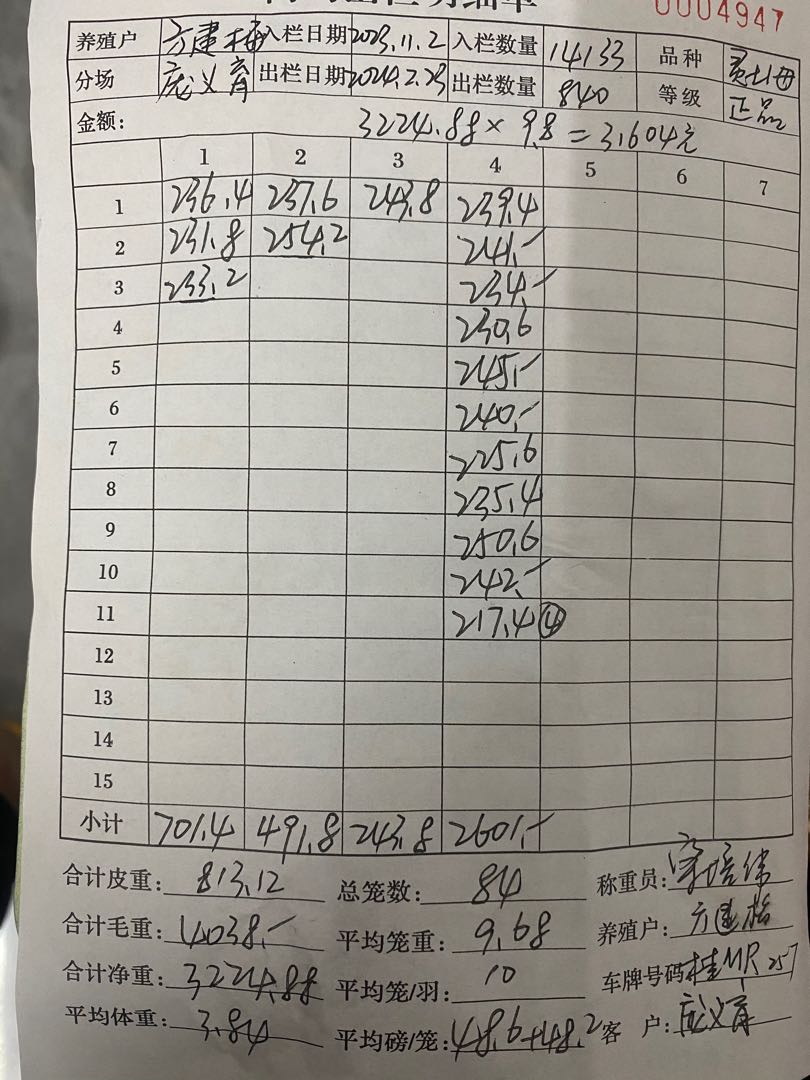 0004947
养殖户 方建梅 入栏日期 2023.11.2 入栏数量 14133 品种
分场 庞义育 出栏日期 2024.2.23 出栏数量 840 等级 正品
金额: 3224.88 × 9.8 = 31604元
1 2 3 4 5 6 7
1 236.4 237.6 243.8 239.4
2 231.8 254.2 241.-
3 233.2 234.-
4 230.6
5 245.-
6 240.-
7 225.6
8 235.4
9 250.6
10 242.-
11 217.4 ④
12
13
14
15
小计 701.4 491.8 243.8 2601.-
合计皮重: 813.12 总笼数: 84 称重员:
合计毛重: 4038.- 平均笼重: 9.68 养殖户: 方建梅
合计净重: 3224.88 平均笼/羽: 10 车牌号码 桂MR257
平均体重: 3.84 平均磅/笼: 48.6+48.2 客 户: 庞义育